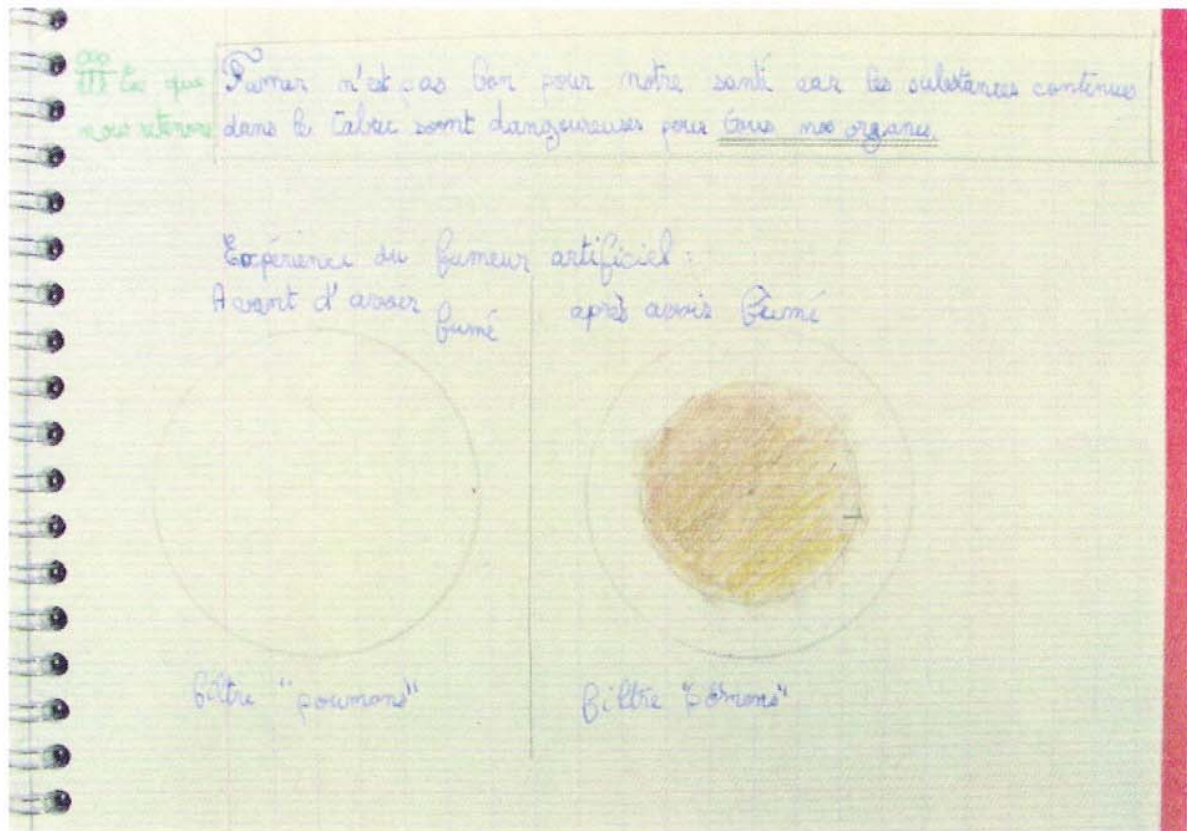 III Ce que
nous retenons
Fumer n'est pas bon pour notre santé car les substances contenues
dans le tabac sont dangeureuses pour tous nos organes.
Expérience du fumeur artificiel :
Avant d'avoir fumé
après avoir fumé
filtre "poumons"
filtre "poumons"